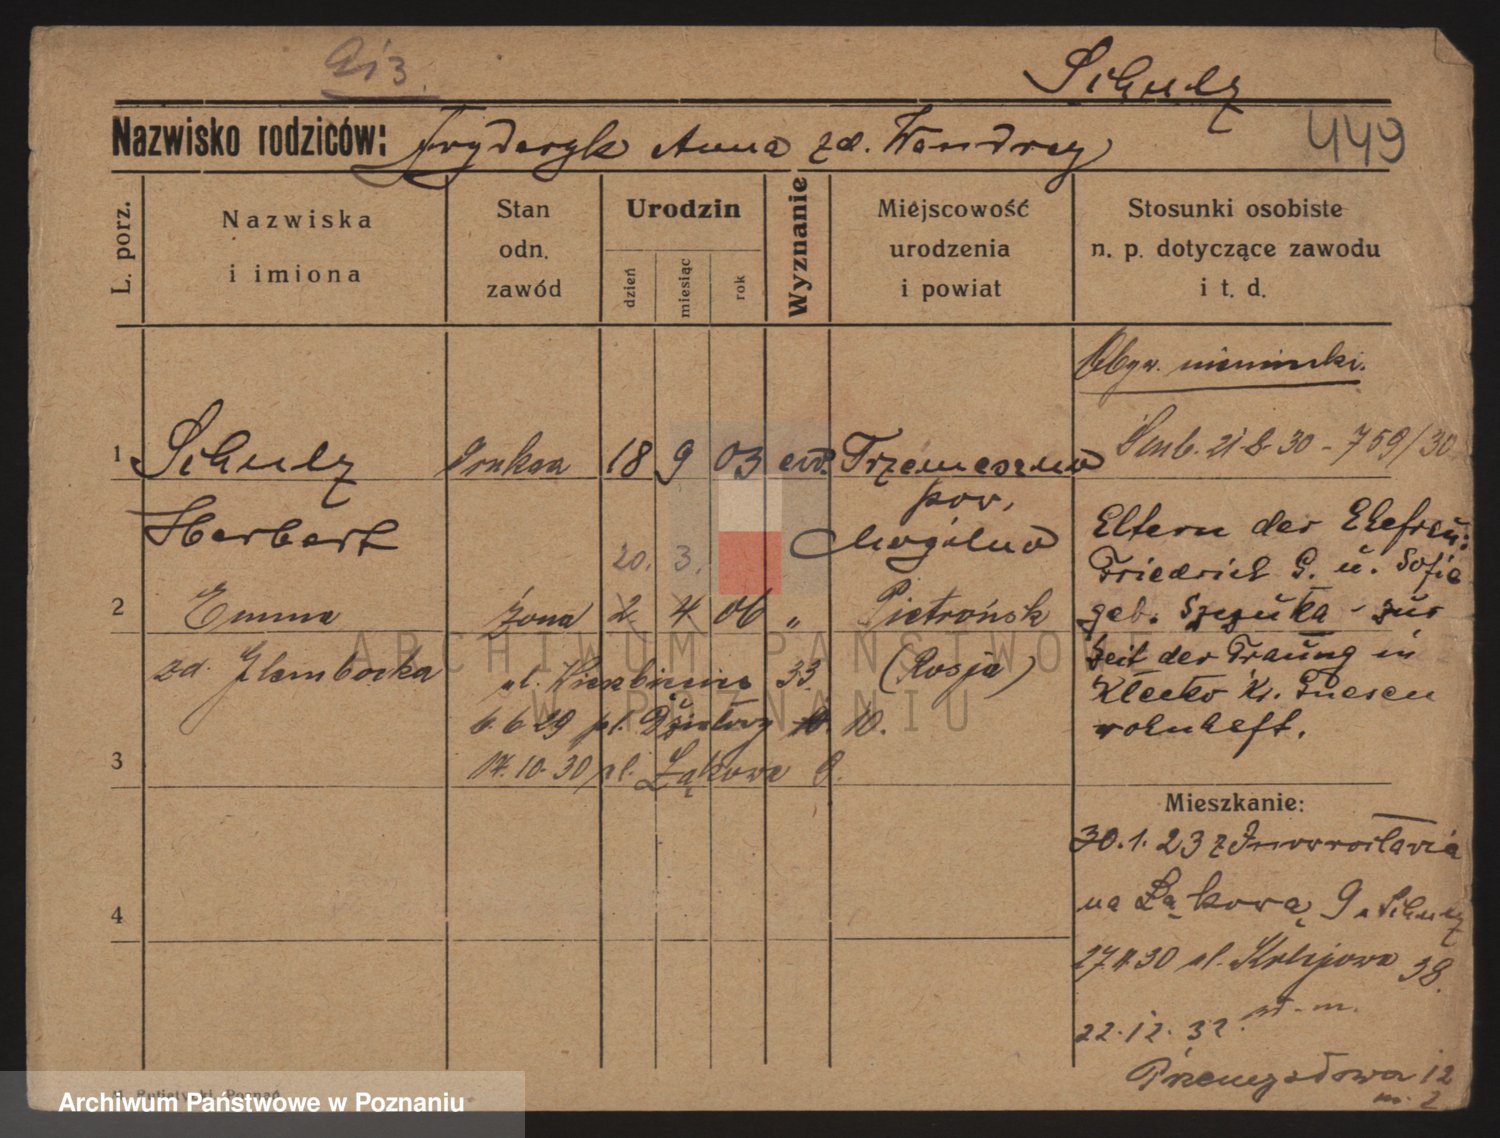 Schulz
Nazwisko rodziców: Fryderyk Anna zd. Wandrey
449
L. porz.
Nazwiska
i imiona
Stan
odn.
zawód
Urodzin
dzień
miesiąc
rok
Wyznanie
Miejscowość
urodzenia
i powiat
Stosunki osobiste
n. p. dotyczące zawodu
i t. d.
Obyw. niemiecki.
1 Schulz 18 9 03 ewd. Trzemeszno
21·8·30 - 759/30
pow.
Herbert Mogilno
Eltern der Ehefrau:
Friedrich G. u. Sofie
20. 3.
2 Emma żona 2 4 06 " Pietrońsk
geb. Szczuka - zur
zd. Glembocka (Rosja)
Zeit der Trauung in
ul. 33
Klecko Kr. Gnesen
6.6.29 pl. Działowy 10. 10.
wohnhaft.
3 17.10.30 ul. Łąkowa 9.
Mieszkanie:
30.1.23 z Inowrocławia
na Łąkową 9 Schulz
4
27.4.30 ul. 38.
22.12.32.
Przemysłowa 12
m. 2
ARCHIWUM PAŃSTWOWE
W POZNANIU
Archiwum Państwowe w Poznaniu